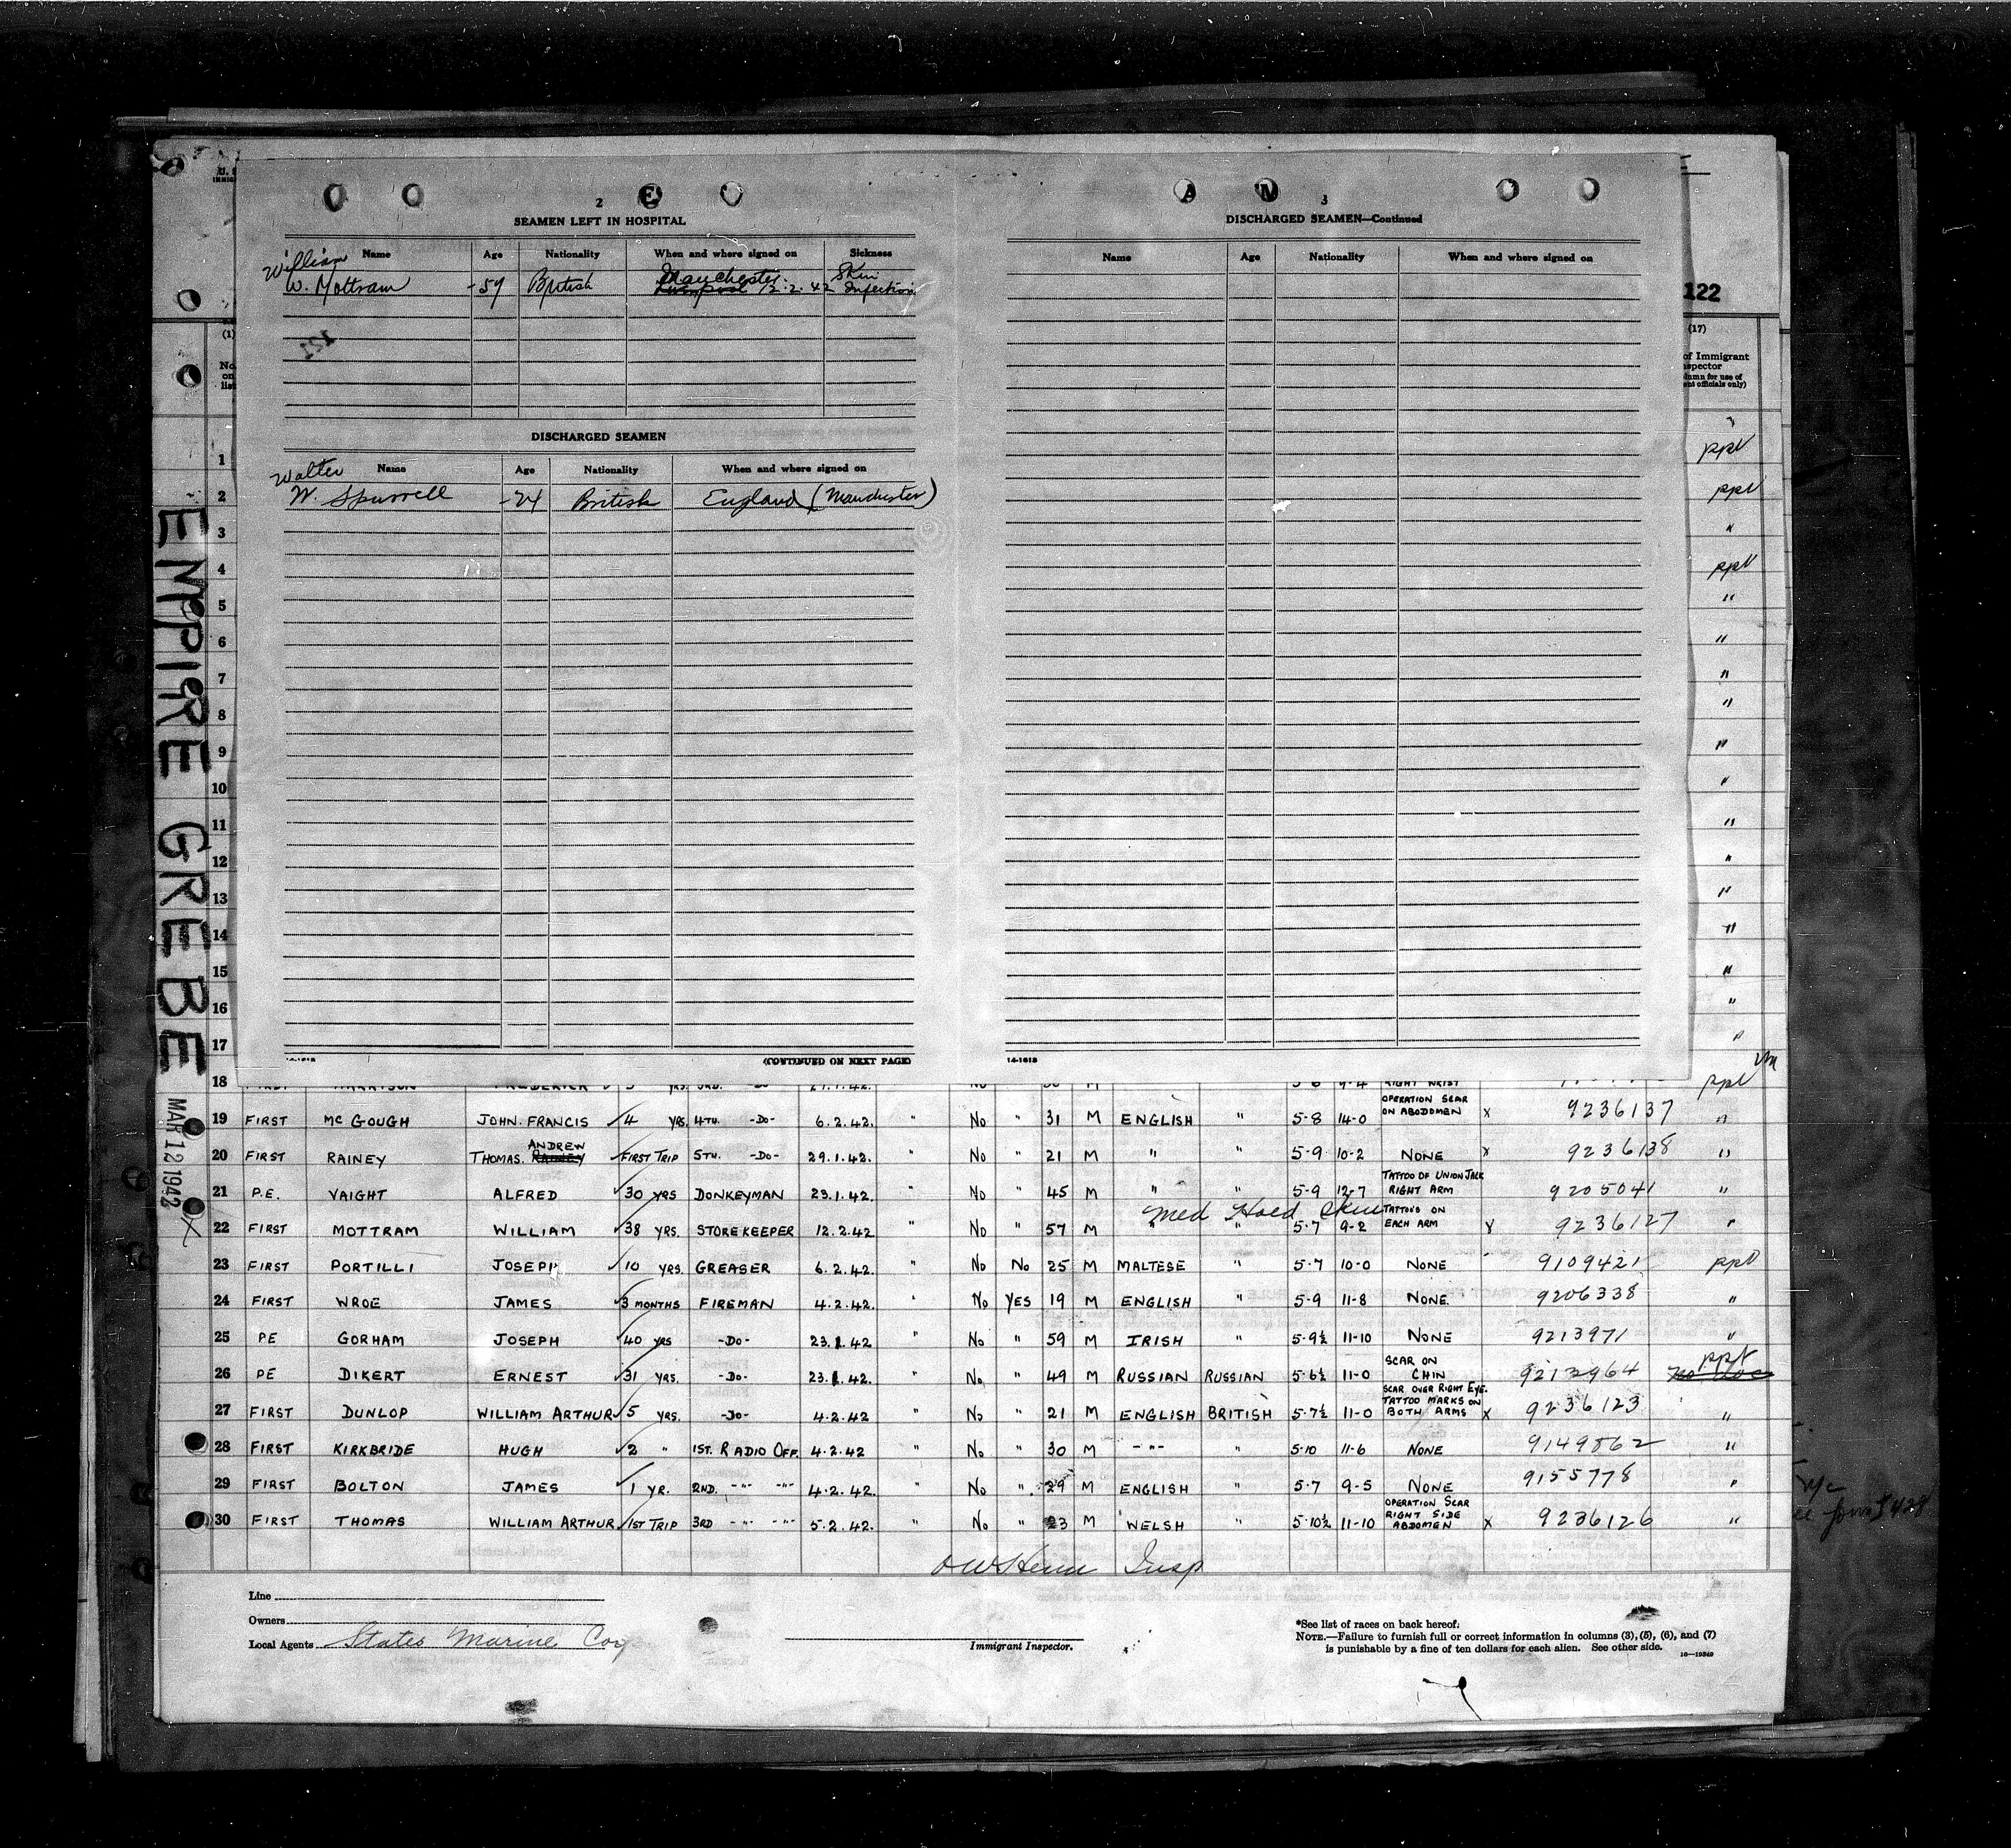 2
SEAMEN LEFT IN HOSPITAL
Name Age Nationality When and where signed on Sickness
William
W. Mottram -59 British Manchester 12.2.42 Skin Infection
121
DISCHARGED SEAMEN
Name Age Nationality When and where signed on
Walter
W. Spurrell -24 British England (Manchester)
14-1613 (CONTINUED ON NEXT PAGE)
E A M
3
DISCHARGED SEAMEN—Continued
Name Age Nationality When and where signed on
14-1613
122
(1)
No. on list
(17)
of Immigrant
Inspector
ppt
1
2 ppt
3 "
4 ppt
5 "
6 "
7 "
8 "
9 "
10 "
11 "
12 "
13 "
14 "
15 "
16 "
17 "
EMPIRE GREBE
MAR 12 1942
18 FIRST HARRISON FREDERICK YRS. 3RD. -DO- No M 5-6 9-4 RIGHT WRIST ppt
19 FIRST McGOUGH JOHN. FRANCIS 4 YRS. 4TH. -DO- 6.2.42. " No " 31 M ENGLISH " 5-8 14-0 OPERATION SCAR ON ABODOMEN X 9236137 "
20 FIRST RAINEY THOMAS. ANDREW FIRST TRIP 5TH. -DO- 29.1.42. " No " 21 M " " 5-9 10-2 NONE X 9236138 "
21 P.E. VAIGHT ALFRED 30 YRS DONKEYMAN 23.1.42. " No " 45 M " " 5-9 12-7 TATTOO OF UNION JACK RIGHT ARM 9205041 "
Med Hold Skin
X 22 FIRST MOTTRAM WILLIAM 38 YRS. STOREKEEPER 12.2.42 " No " 57 M " 5.7 9-2 TATTOO'S ON EACH ARM Y 9236127 "
23 FIRST PORTILLI JOSEPH 10 YRS. GREASER 6.2.42. " No No 25 M MALTESE " 5.7 10-0 NONE 9109421 ppt
24 FIRST WROE JAMES 3 MONTHS FIREMAN 4.2.42. " No YES 19 M ENGLISH " 5-9 11-8 NONE. 9206338 "
25 PE GORHAM JOSEPH 40 YRS -DO- 23.1.42. " No " 59 M IRISH " 5-9½ 11-10 NONE 9213971 "
26 PE DIKERT ERNEST 31 YRS. -DO- 23.1.42. " No " 49 M RUSSIAN RUSSIAN 5-6½ 11-0 SCAR ON CHIN 9212964 ppt
27 FIRST DUNLOP WILLIAM ARTHUR 5 YRS. -DO- 4.2.42 " No " 21 M ENGLISH BRITISH 5-7½ 11-0 SCAR OVER RIGHT EYE. TATTOO MARKS ON BOTH ARMS X 9236123 "
28 FIRST KIRKBRIDE HUGH 2 " 1ST. RADIO OFF. 4.2.42 " No " 30 M -"- " 5-10 11-6 NONE 9149862 "
29 FIRST BOLTON JAMES 1 YR. 2ND. -"- -"- 4.2.42. " No " 29 M ENGLISH " 5-7 9-5 NONE 9155778 "
30 FIRST THOMAS WILLIAM ARTHUR. 1ST TRIP 3RD -"- -"- 5.2.42. " No " 23 M WELSH " 5-10½ 11-10 OPERATION SCAR RIGHT SIDE ABDOMEN X 9236126 "
Insp
Line
Owners
Local Agents States Marine Corp
Immigrant Inspector.
*See list of races on back hereof.
NOTE.—Failure to furnish full or correct information in columns (3), (5), (6), and (7)
is punishable by a fine of ten dollars for each alien. See other side.
16—19349